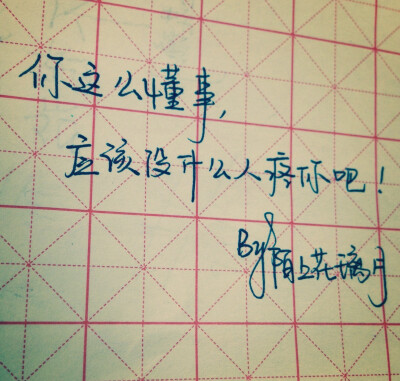 你这么懂事,
应该没什么人疼你吧!
By 陌上花璃月